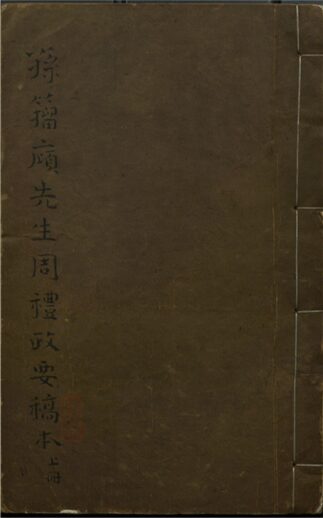 孫籀廎先生周禮政要稿本上冊